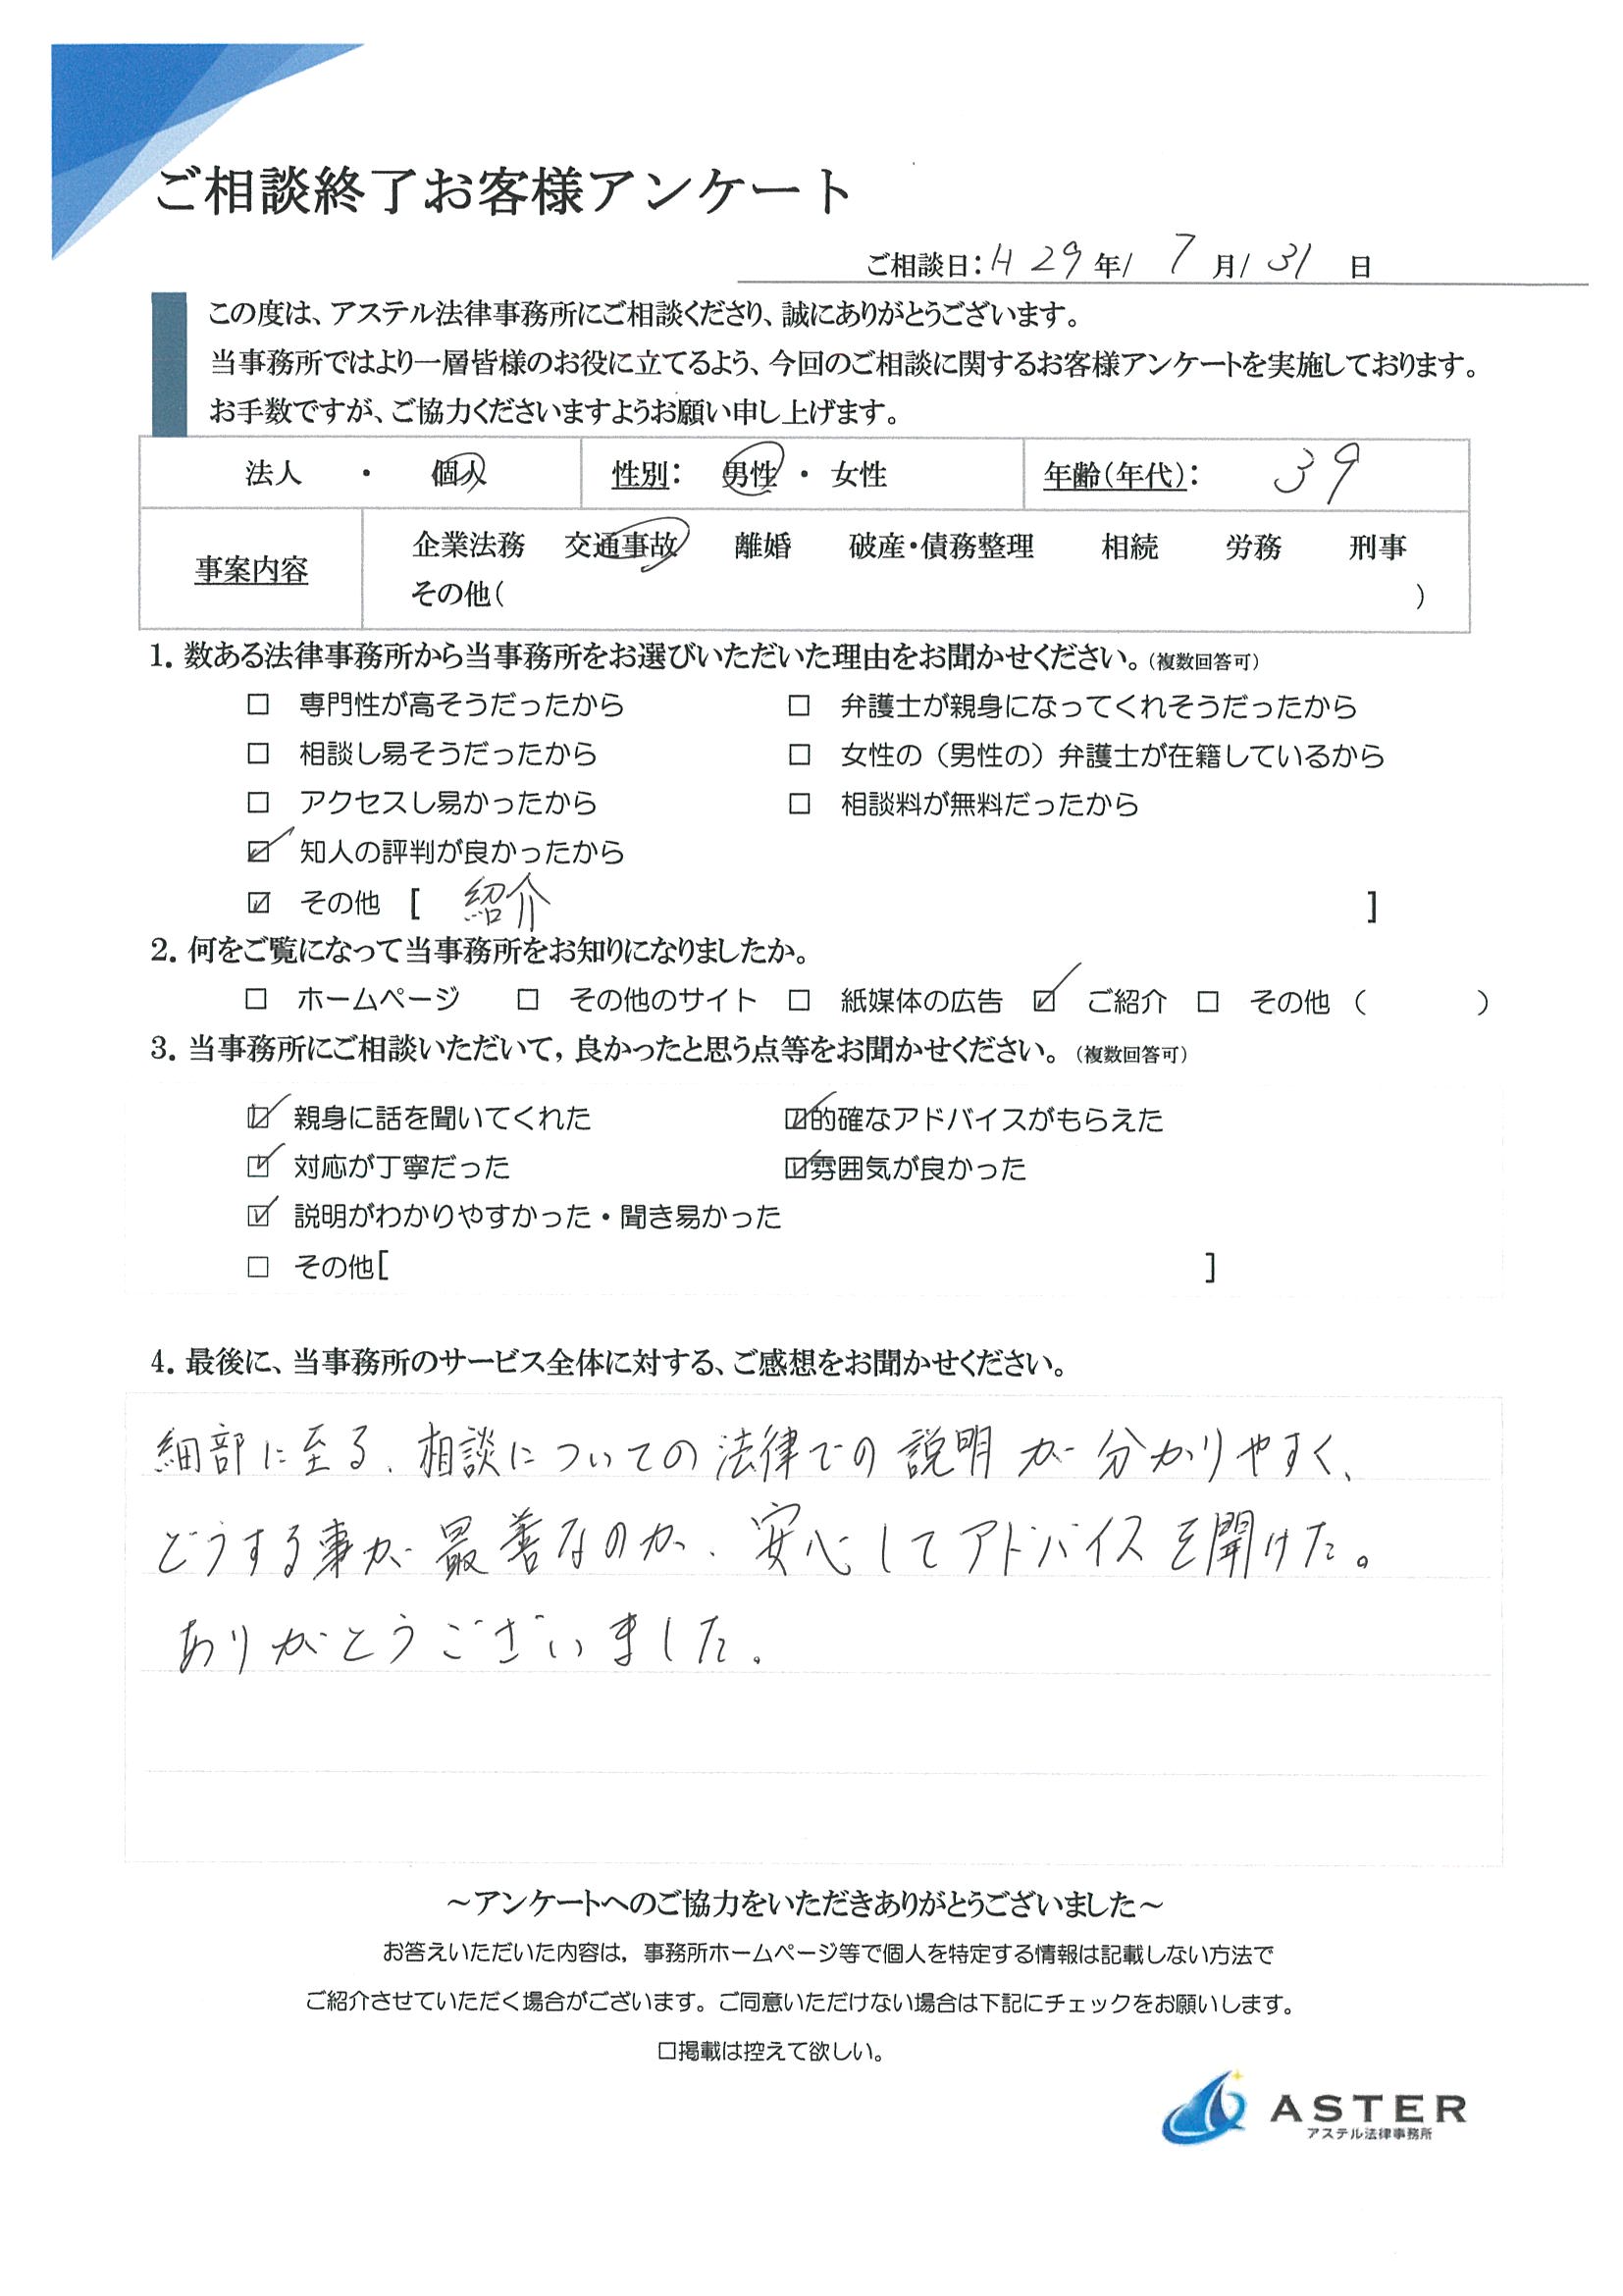 ご相談終了お客様アンケート
ご相談日：H 29 年/ 7 月/ 31 日
この度は、アステル法律事務所にご相談くださり、誠にありがとうございます。
当事務所ではより一層皆様のお役に立てるよう、今回のご相談に関するお客様アンケートを実施しております。
お手数ですが、ご協力くださいますようお願い申し上げます。
法人 ・ 個人 性別： 男性 ・ 女性 年齢（年代）： 39
事案内容 企業法務 交通事故 離婚 破産・債務整理 相続 労務 刑事
その他（ ）
1. 数ある法律事務所から当事務所をお選びいただいた理由をお聞かせください。（複数回答可）
□ 専門性が高そうだったから □ 弁護士が親身になってくれそうだったから
□ 相談し易そうだったから □ 女性の（男性の）弁護士が在籍しているから
□ アクセスし易かったから □ 相談料が無料だったから
☑ 知人の評判が良かったから
☑ その他 [ 紹介 ]
2. 何をご覧になって当事務所をお知りになりましたか。
□ ホームページ □ その他のサイト □ 紙媒体の広告 ☑ ご紹介 □ その他 （ ）
3. 当事務所にご相談いただいて，良かったと思う点等をお聞かせください。（複数回答可）
☑ 親身に話を聞いてくれた ☑的確なアドバイスがもらえた
☑ 対応が丁寧だった ☑雰囲気が良かった
☑ 説明がわかりやすかった・聞き易かった
□ その他[ ]
4. 最後に、当事務所のサービス全体に対する、ご感想をお聞かせください。
細部に至る、相談についての法律での説明が分かりやすく、
どうする事が最善なのか、安心してアドバイスを聞けた。
ありがとうございました。
～アンケートへのご協力をいただきありがとうございました～
お答えいただいた内容は，事務所ホームページ等で個人を特定する情報は記載しない方法で
ご紹介させていただく場合がございます。ご同意いただけない場合は下記にチェックをお願いします。
□掲載は控えて欲しい。
ASTER
アステル法律事務所